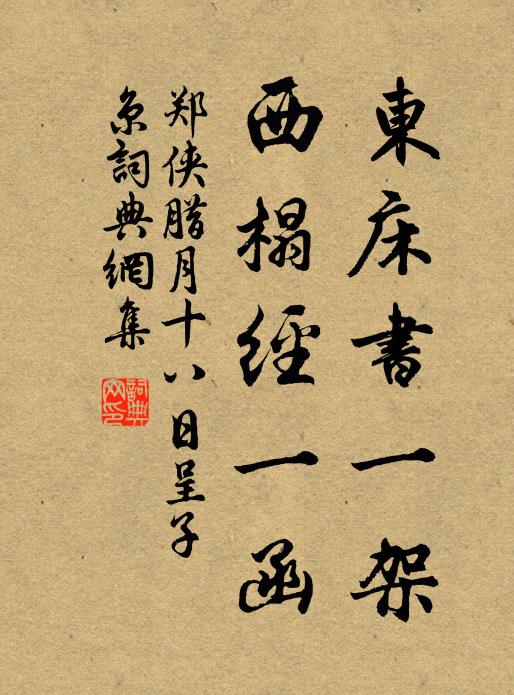 東床書一架
西榻經一函
郑侠腊月十八日呈子
京詞典網集
詞典網印